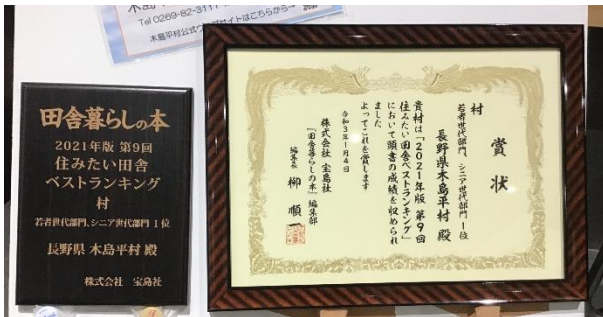 木島平
Tel 0269-82-3111
木島平村公式ウェブサイトはこちらから→
田舎暮らしの本
2021年版 第9回
住みたい田舎
ベストランキング
村
若者世代部門、シニア世代部門 1位
長野県 木島平村 殿
株式会社 宝島社
賞状
村
若者世代部門、シニア世代部門 1位
長野県木島平村 殿
貴村は「2021年版 第9回
住みたい田舎ベストランキング」
において頭書の成績を収められ
ました
よってこれを賞します
令和3年1月4日
株式会社 宝島社
『田舎暮らしの本』編集部
編集長 柳 順一